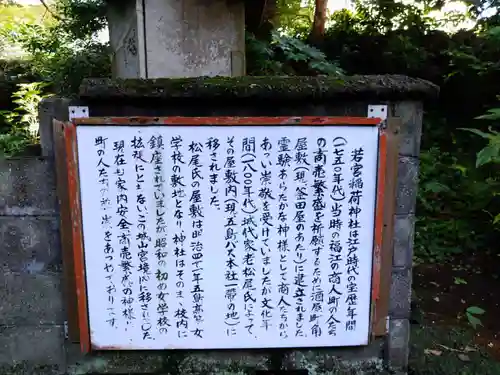 若宮稲荷神社は江戸時代の宝暦年間
(一七五〇年代)当時の福江の商人町の人たち
の商売繁盛を祈願するために酒屋町角
屋敷(現釜田屋のあたり)に建立され
霊験あらたかな神様として商人たちから
あつい崇敬を受けていましたが文化年
間(一八〇〇年代)城代家老松尾氏によって
その屋敷内(現五島バス本社一帯の地)に
移されました。
松尾氏の屋敷は明治四十一年五島高等女
学校の敷地となり神社はそのまま校内に
鎮座されていましたが昭和の初め女学校の
拡張とともにいまのこの城山宮境内に移されました。
現在も家内安全、商売繁盛の神様に
町の人たちの崇敬をあつめております。